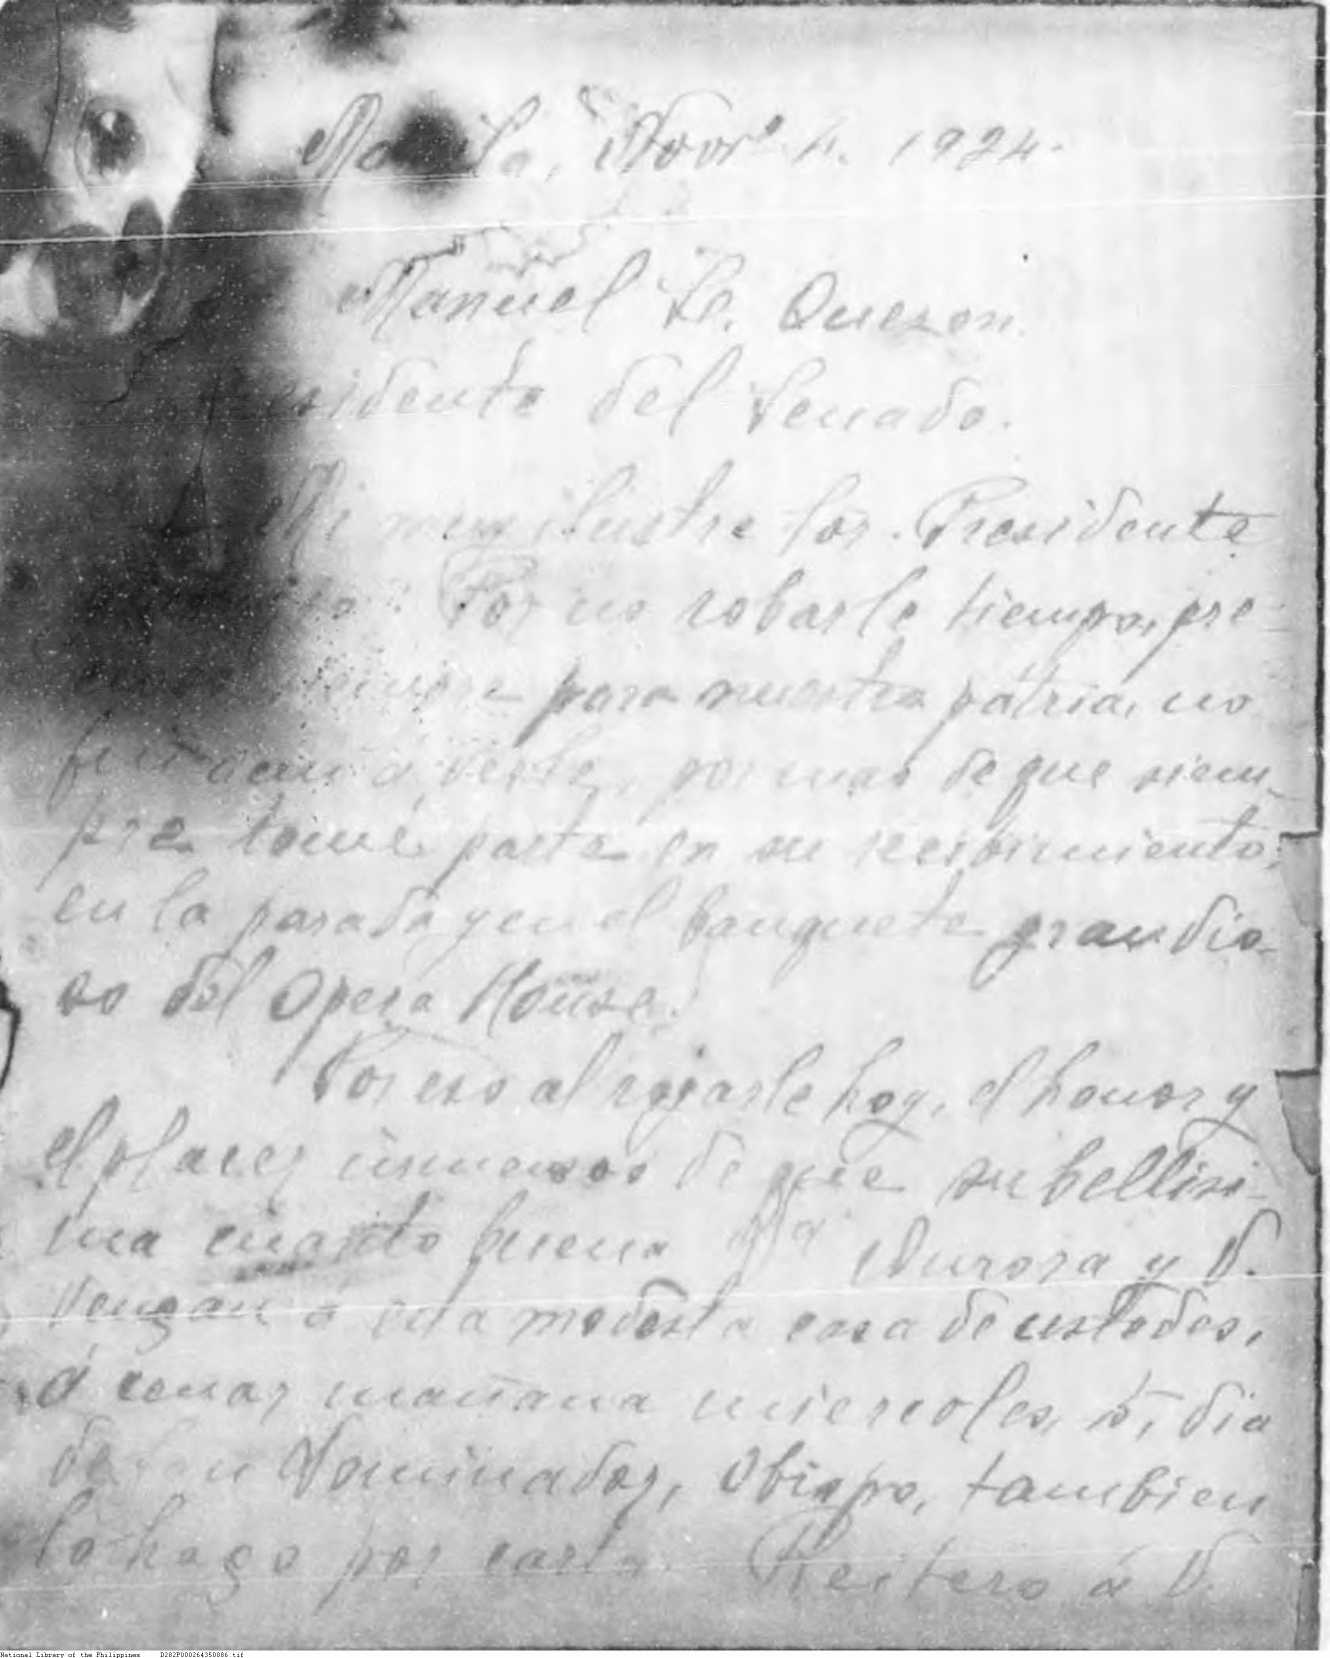 Manila, Novre 4. 1924.
Manuel L. Quezon.
sidente del Senado.
Mi muy ilustre Sor. Presidente
Por no robarle tiempo, pre-
siempre para nuestra patria, no
fuí a verle, por mas de que siem-
pre tomé parte en su recibimiento,
en la parada y en el banquete grandio-
so del Opera House.
Por eso al rogarle hoy, el honor y
el placer inmensos de que su bellisi-
ma cuanto buena Da Aurora y V.
vengan á esta modesta casa de ustedes,
á cenar mañana miercoles, 5, dia
de San Dominador, Obispo, tambien
lo hago por carta. Reitero á V.
National Library of the Philippines D282P000264350086.tif